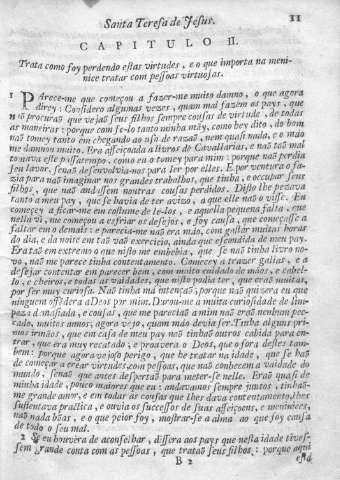 Santa Teresa de Jesus. 11
CAPITULO II.
Trata como foy perdendo estas virtudes, e o que importa na meni-
nice tratar com pessoas virtuosas.
1 PArece-me que começou a fazer-me muito damno, o que agora
direy: Considero algumas vezes, quam mal fazem os pays, que
naõ procuraõ que vejaõ seus filhos sempre cousas de virtude, de todas
as maneiras: porque com se-lo tanto minha mãy, como hey dito, do bom
naõ tomey tanto em chegando ao uso de razaõ, nem quasi nada, e o máo
me damnou muito. Era affeiçoada a livros de Cavallarias, e naõ taõ mal
tomava este passatempo, como eu o tomey para mim: porque naõ perdia
seu lavor, senaõ desenvolvia-nos para ler por elles. E por ventura o fa-
zia para naõ imaginar nos grandes trabalhos, que tinha, e occupar seus
filhos, que naõ andassem noutras cousas perdidos. Disto lhe pezava
tanto a meu pay, que se havia de ter avizo, a que elle naõ o visse. Eu
comecey a ficar-me em costume de le-los, e aquella pequena falta, que
nella vi, me começou a esfriar os desejos, e foy causa, que começasse a
faltar em o demais: e parecia-me naõ era máo, com gastar muitas horas
do dia, e da noite em taõ vaõ exercicio, ainda que escondida de meu pay.
Era taõ em extremo o que nisto me embebia, que se naõ tinha livro no-
vo, naõ me parece tinha contentamento. Comecey a trazer galas, e a
desejar contentar em parecer bem, com muito cuidado de mãos, e cabel-
lo, e cheiros, e todas as vaidades, que nisto podia ter, que eraõ muitas,
por ser muy curiosa. Naõ tinha má intençaõ, porque naõ quizera eu que
ninguem offendera a Deos por mim. Durou-me a muita curiosidade de lim-
peza demasiada, e cousas, que me pareciaõ a mim naõ eraõ nenhum pec-
cado, muitos annos; agora vejo, quam máo devia ser. Tinha alguns pri-
mos irmãos, que em casa de meu pay naõ tinhaõ outros cabida para en-
trar, que era muy recatado, e prouvera o Deos, que o fora destes tam-
bem: porque agora vejo o perigo, que he tratar na idade, que se haõ
de começar a crear virtudes com pessoas, que naõ conhecem a vaidade do
mundo, senaõ que antes despertaõ para meter-se nelle. Eraõ quasi de
minha idade, pouco maiores que eu: andavamos sempre juntos, tinhaõ-
me grande amor, e em todas as cousas que lhes dava contentamento, lhes
sustentava pratica, e ouvia os successos de suas affeiçoens, e meninices,
naõ nada boas, e o que peior foy, mostrar-se a alma ao que foy causa
de todo o seu mal.
2 Se eu houvera de aconselhar, dissera aos pays que nesta idade tives-
sem grande conta com as pessoas, que trataõ seus filhos: porque aqui
B 2 está